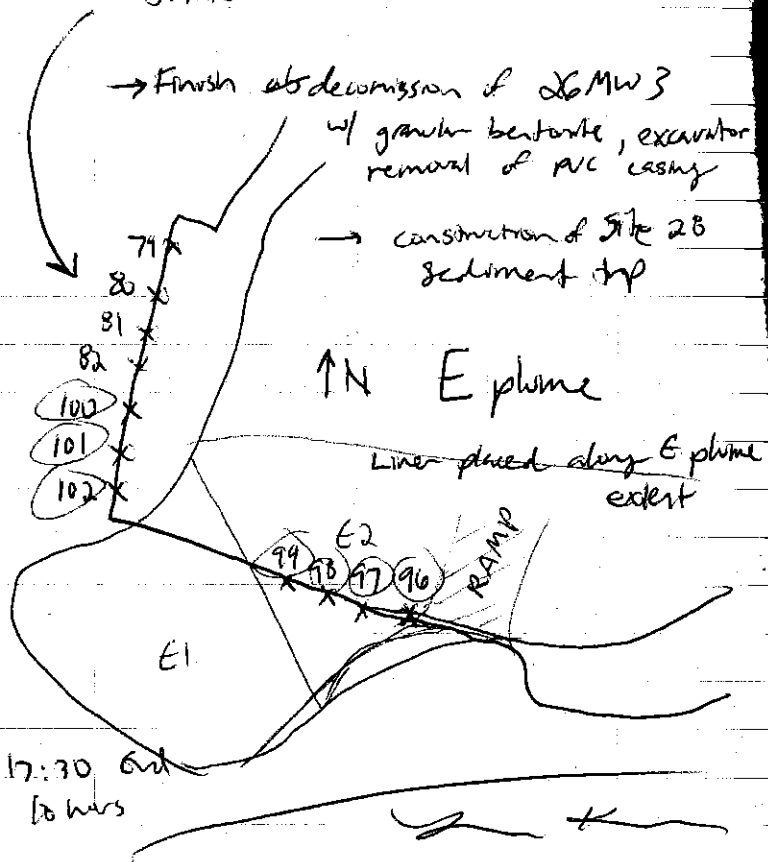 → Finish decomission of 26MW3
w/ granular bentonite, excavator
removal of PVC casing
→ construction of Site 28
sediment trap
79
80
81
82
100
101
102
↑N E plume
Liner placed along E plume
extent
RAMP
E2
99 98 97 96
E1
17:30 End
10 hours